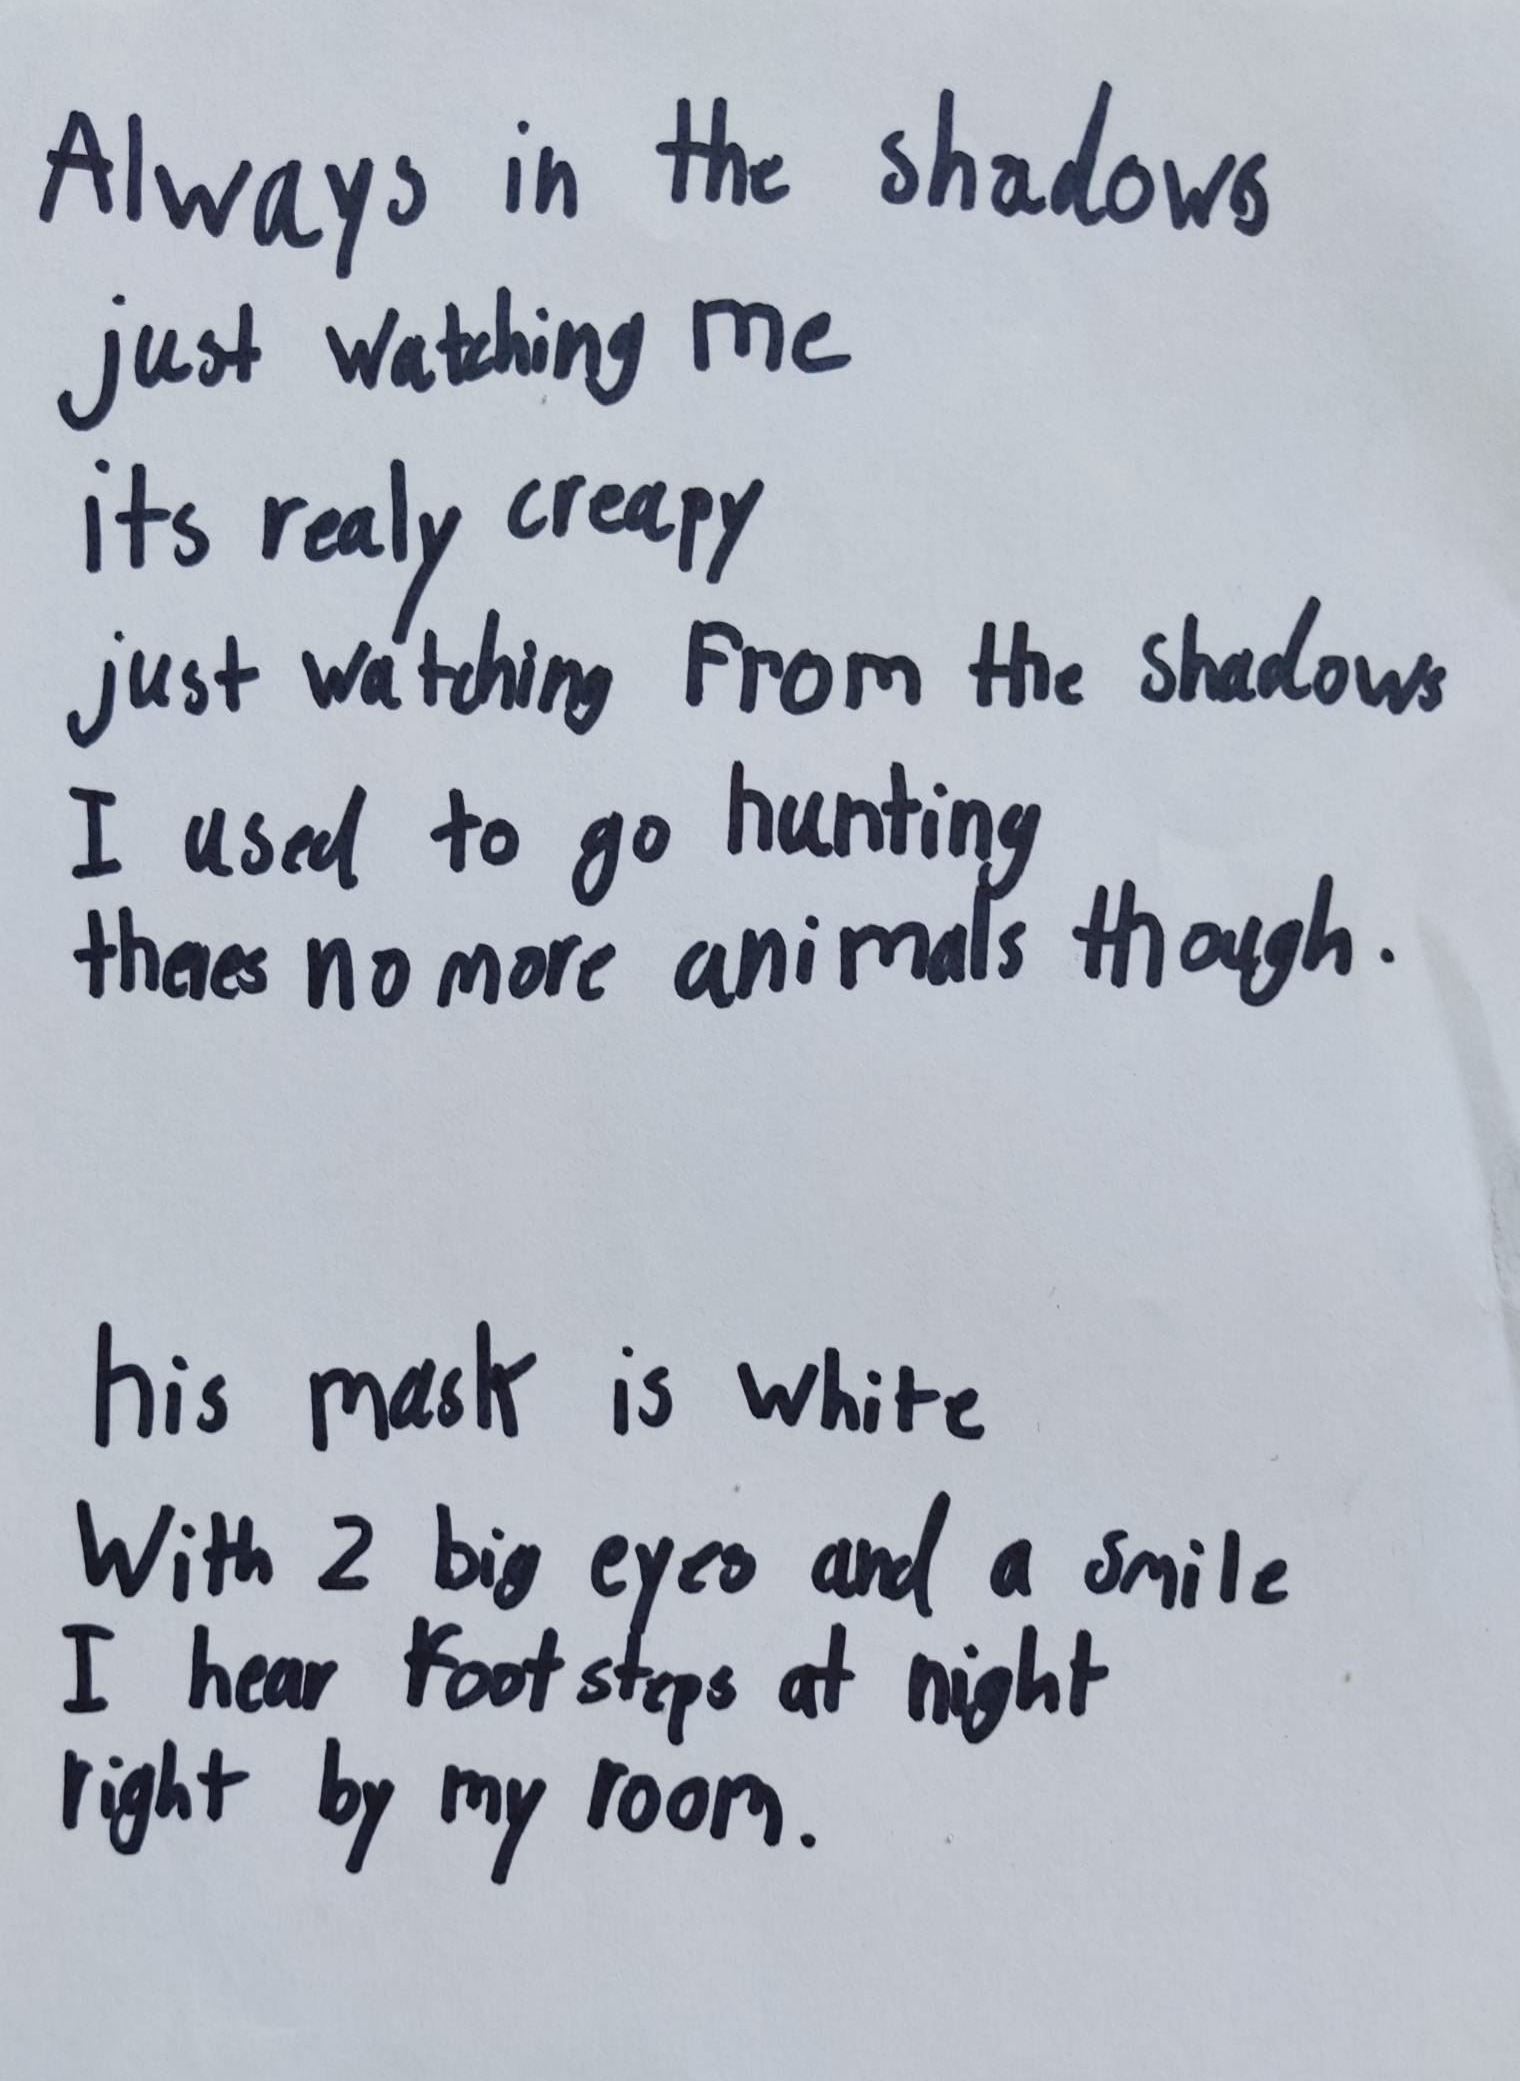 Always in the shadows
just watching me
its realy creapy
just watching From the shadows
I used to go hunting
theres no more animals though.
his mask is white
With 2 big eyes and a smile
I hear Footsteps at night
right by my room.